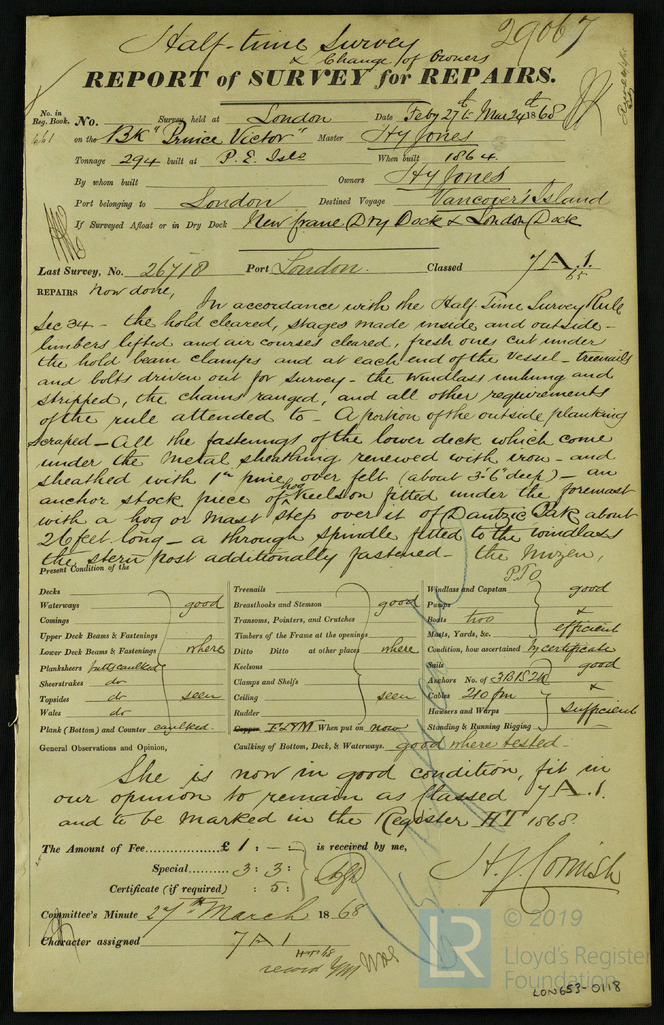 Half-time Survey 29067
& Change of Owners
REPORT of SURVEY for REPAIRS.
No. in
Reg. Book.
661
No. Survey held at London Date Feby 27th to Mar 24th 1868
on the Bk "Prince Victor" Master Hy Jones
Tonnage 294 built at P. E. Isle When built 1864.
By whom built Owners Hy Jones
Port belonging to London Destined Voyage Vancover's Island
If Surveyed Afloat or in Dry Dock New crane Dry Dock & London Dock
Last Survey, No. 26718 Port London. Classed 7 A. 1.
65
REPAIRS now done, In accordance with the Half Time Survey Rule
Sec 34 - the hold cleared, stages made inside and outside -
limbers lifted and air courses cleared, fresh ones cut under
the hold beam clamps and at each end of the vessel - treenails
and bolts driven out for survey - the windlass unhung and
stripped, the chains ranged, and all other requirements
of the rule attended to - A portion of the outside planking
scraped - All the fastenings of the lower deck which come
under the metal sheathing renewed with iron - and
sheathed with 1in pine over felt (about 3'6" deep) - an
anchor stock piece of hog Keelson fitted under the foremast
with a hog or mast step over it of Dantzic Oak about
26 feet long - a through spindle fitted to the windlass
the stern post additionally fastened - the Mizen,
P.T.O
Present Condition of the
Decks
Waterways good
Comings
Upper Deck Beams & Fastenings
Lower Deck Beams & Fastenings where
Planksheers butts caulked
Sheerstrakes do
Topsides do seen
Wales do
Plank (Bottom) and Counter caulked.
Treenails
Breasthooks and Stemson good
Transoms, Pointers, and Crutches
Timbers of the Frame at the openings
Ditto Ditto at other places where
Keelsons
Clamps and Shelfs
Ceiling seen
Rudder
Copper F&YM When put on now
Caulking of Bottom, Deck, & Waterways. good where tested -
Windlass and Capstan good
Pumps
Boats two &
Masts, Yards, &c. efficient
Condition, how ascertained by certificate
Sails good
Anchors No. of 3B 1S 2K
Cables 210 fm &
Hawsers and Warps sufficient
Standing & Running Rigging
General Observations and Opinion,
She is now in good condition, fit in
our opinion to remain as Classed 7 A. 1.
and to be marked in the Register HT 1868.
The Amount of Fee £ 1 : - : is received by me,
Special 3 : 3 :
Certificate (if required) : 5 :
H. J. Cornish
Committee's Minute 27th March 1868
Character assigned 7 A 1
HT 68
record YM
LR
© 2019
Lloyd's Register
Foundation
LON653-0118